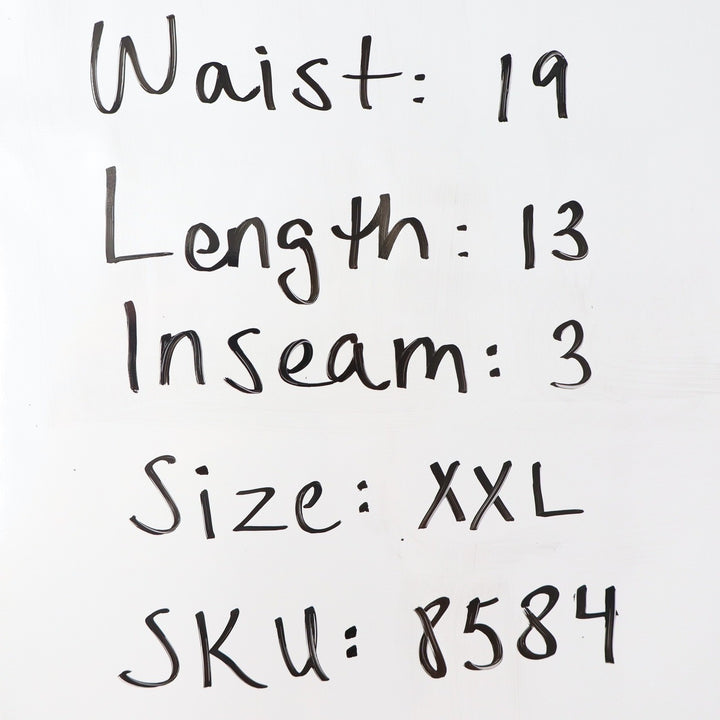 Waist: 19
Length: 13
Inseam: 3
Size: XXL
SKU: 8584